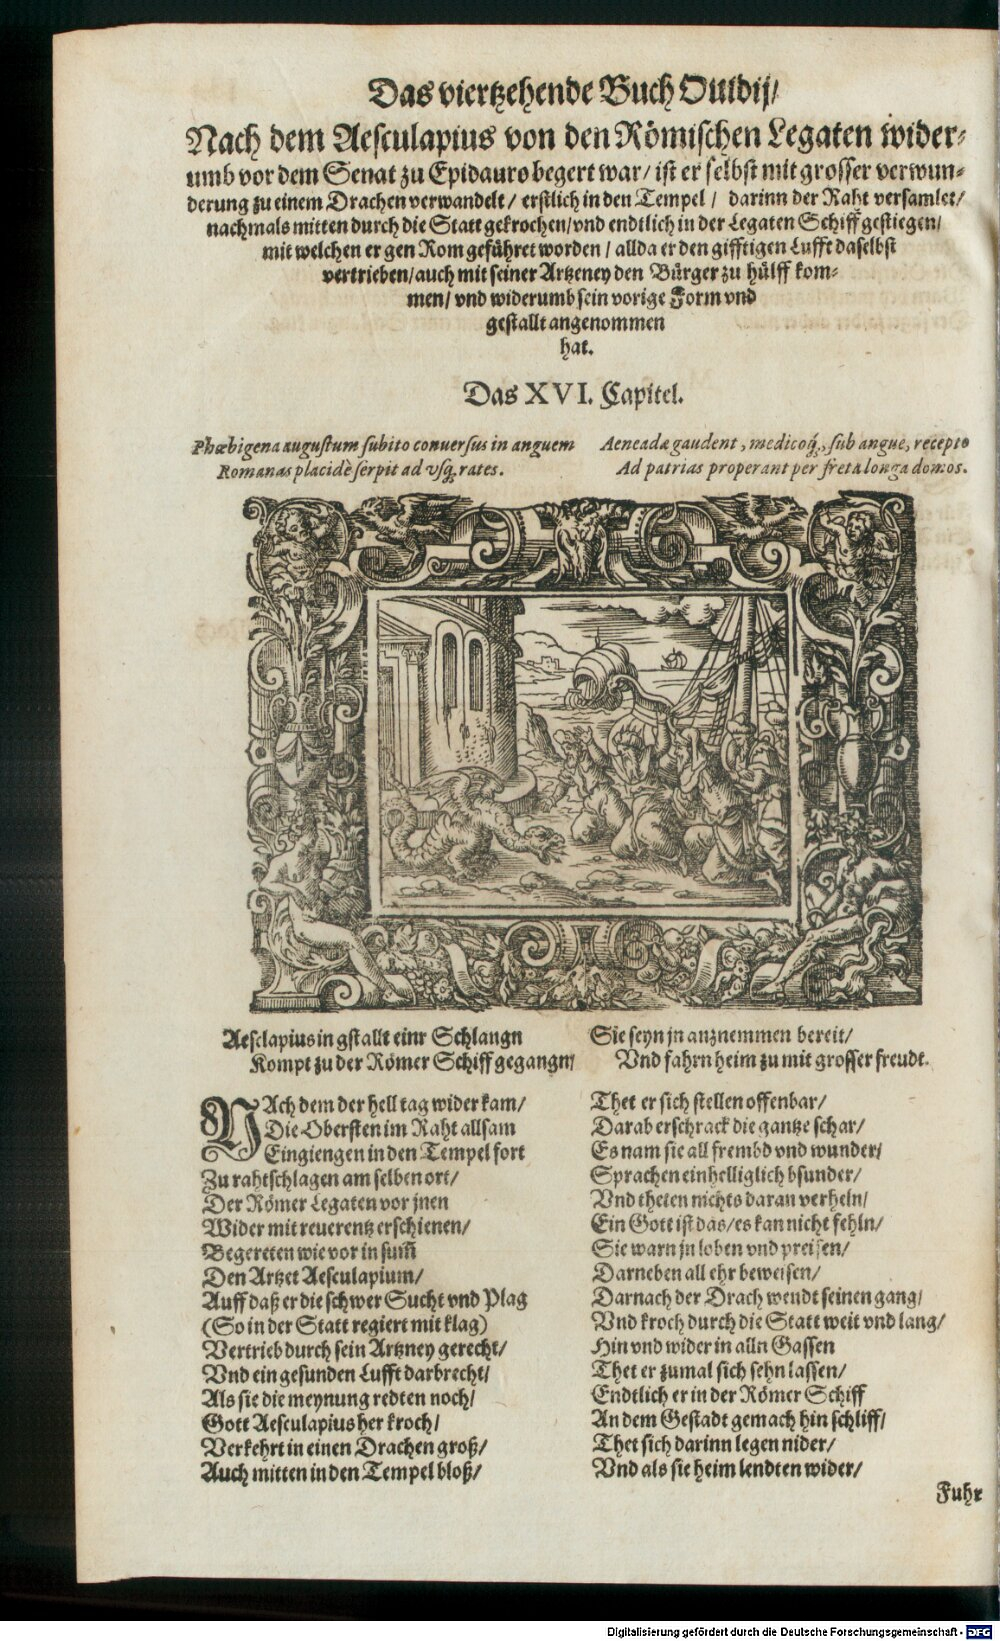 Das viertzehende Buch Ouidij/
Nach dem Aesculapius von den Römischen Legaten wider-
umb vor dem Senat zu Epidauro begert war/ ist er selbst mit grosser verwun-
derung zu einem Drachen verwandelt/ erstlich in den Tempel/ darinn der Raht versamlet/
nachmals mitten durch die Statt gekrochen/ vnd endtlich in der Legaten Schiff gestiegen/
mit welchen er gen Rom geführet worden/ allda er den gifftigen Lufft daselbst
vertrieben/ auch mit seiner Artzeney den Bürger zu hülff kom-
men/ vnd widerumb sein vorige Form vnd
gestallt angenommen
hat.
Das XVI. Capitel.
Phœbigena augustum subito conuersus in anguem
Romanas placidè serpit ad vsq́; rates.
Aeneadæ gaudent, medicoq́;, sub angue, recepto
Ad patrias properant per freta longa domos.
Aesclapius in gstallt einr Schlangn
Kompt zu der Römer Schiff gegangn/
Sie seyn jn anznemmen bereit/
Vnd fahrn heim zu mit grosser freudt.
NAch dem der hell tag wider kam/
Die Obersten im Raht allsam
Eingiengen in den Tempel fort
Zu rahtschlagen am selben ort/
Der Römer Legaten vor jnen
Wider mit reuerentz erschienen/
Begereten wie vor in sum̃
Den Artzet Aesculapium/
Auff daß er die schwer Sucht vnd Plag
(So in der Statt regiert mit klag)
Vertrieb durch sein Artzney gerecht/
Vnd ein gesunden Lufft darbrecht/
Als sie die meynung redten noch/
Gott Aesculapius her kroch/
Verkehrt in einen Drachen groß/
Auch mitten in den Tempel bloß/
Thet er sich stellen offenbar/
Darab erschrack die gantze schar/
Es nam sie all frembd vnd wunder/
Sprachen einhelliglich bsunder/
Vnd theten nichts daran verheln/
Ein Gott ist das/ es kan nicht fehln/
Sie warn jn loben vnd preisen/
Darneben all ehr beweisen/
Darnach der Drach wendt seinen gang/
Vnd kroch durch die Statt weit vnd lang/
Hin vnd wider in alln Gassen
Thet er zumal sich sehn lassen/
Endtlich er in der Römer Schiff
An dem Gestadt gemach hin schliff/
Thet sich darinn legen nider/
Vnd als sie heim lendten wider/
Fuhr
Digitalisierung gefördert durch die Deutsche Forschungsgemeinschaft - DFG